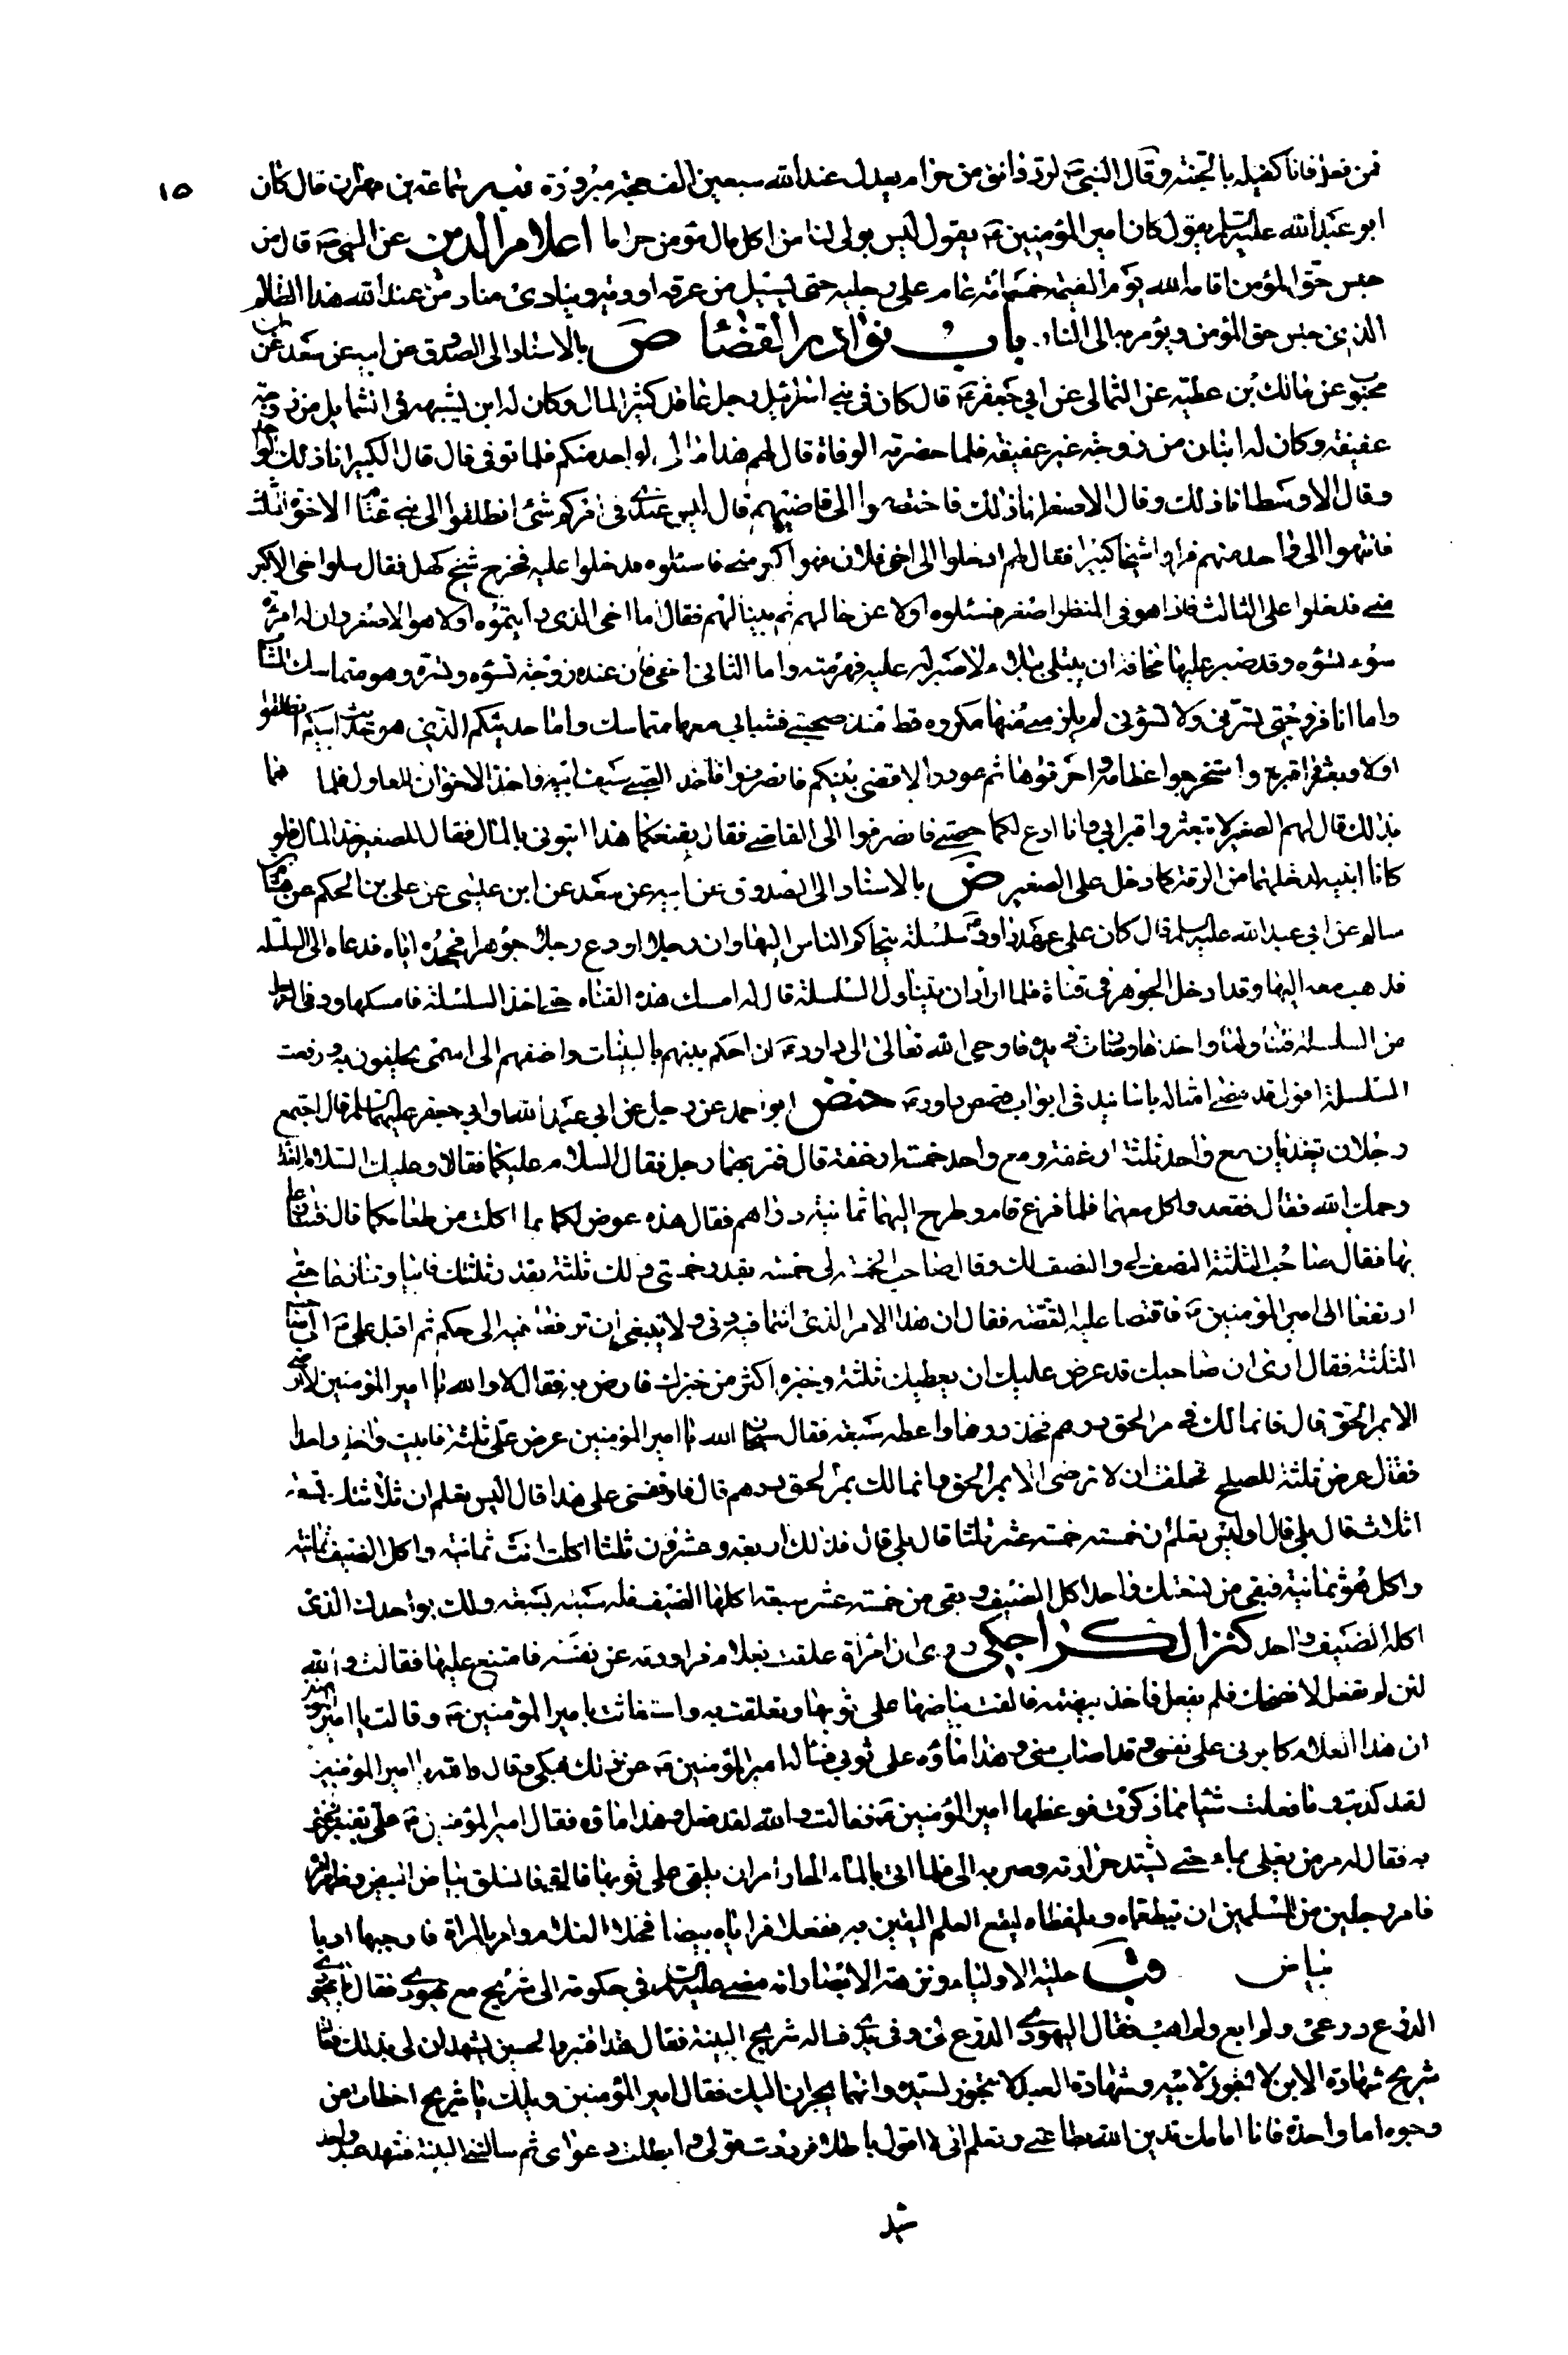 ١٥
فمن فعل فانا كفيله بالجنة وقال النبي ص لرد دانق من حرام يعدل عند الله سبعين الف حجة مبرورة سماعة بن مهران قال كان
ابو عبد الله عليه السلم يقول كان امير المؤمنين ع يقول ليس بولي لنا من اكل مال مؤمن حراما اعلام الدين عن النبي ص قال من
حبس حق المؤمن اقامه الله يوم القيمة خمسمائة عام على رجليه حتى يسيل من عرقه اودية وينادي مناد من عند الله هذا الظالم
الذي حبس حق المؤمن ويؤمر به الى النار باب نوادر القضاء ص بالاسناد الى الصدوق عن ابيه عن سعد عن ابن
محبوب عن مالك بن عطية عن الثمالي عن ابي جعفر ع قال كان في بني اسرائيل رجل عاقل كثير المال وكان له ابن يشبهه في الشمايل من زوجة
عفيفة وكان له ابنان من زوجة غير عفيفة فلما حضرته الوفاة قال لهم هذا مالي لواحد منكم فلما توفي قال قال الكبير انا ذلك الواحد
وقال الاوسط انا ذلك وقال الاصغر انا ذلك فاختصموا الى قاضيهم قال ليس عندي في امركم شئ انطلقوا الى بني غنام الاخوة الثلث
فانتهوا الى واحد منهم فراوا شيخا كبيرا فقال لهم ادخلوا الى اخي فلان فهو اكبر مني فاسئلوه فدخلوا عليه فخرج شيخ كهل فقال سلوا اخي الاكبر
مني فدخلوا على الثالث فاذا هو في المنظر اصغر فسئلوه اولا عن حالهم ثم مبينا لهم فقال اما اخي الذي رايتموه اولا هو الاصغر وان له امرأة
سوء تسوؤه وقد صبر عليها مخافة ان يبتلى ببلاء لا صبر له عليه فهرمته واما الثاني اخي فان عنده زوجة تسوؤه وتسره وهو متماسك الشباب
واما انا فزوجتي تسرني ولا تسوؤني لم يلزمني منها مكروه قط منذ صحبتني فشبابي معها متماسك واما حديثكم الذي هو حديث ابيكم انطلقوا
اولا وبعثروا قبره واستخرجوا عظامه واحرقوها ثم عودوا لاقضي بينكم فانصرفوا فاخذ الصبي سيف ابيه واخذ الاخوان المعاول فلما هما
بذلك قال لهم الصغير لا تبعثروا قبر ابي وانا ادع لكما حصتي فانصرفوا الى القاضي فقال يقنعكما هذا ائتوني بالمال فقال للصغير خذ المال فلو
كانا ابنيه لدخلهما من الرقة كما دخل على الصغير ص بالاسناد الى الصدوق عن ابيه عن سعد عن ابن عيسى عن علي بن الحكم عن هشام بن
سالم عن ابي عبد الله عليه السلم قال كان على عهد داود ع سلسلة يتحاكم الناس اليها وان رجلا اودع رجلا جوهرا فجحده اياه فدعاه الى السلسلة
فذهب معه اليها وقد ادخل الجوهر في قناة فلما اراد ان يتناول السلسلة قال له امسك هذه القناة حتى اخذ السلسلة فامسكها ودنى الرجل
من السلسلة فتناولها واخذها وصارت في يده فاوحى الله تعالى الى داود ع ان احكم بينهم بالبينات واضفهم الى اسمي يحلفون به ورفعت
السلسلة اقول قد مضى امثاله باسانيد في ابواب قصص داود ع ابو احمد عن رجل عن ابي عبد الله وابي جعفر عليهما السلم قال اجتمع
رجلان يتغذيان مع واحد ثلثة ارغفة ومع واحد خمسة ارغفة قال فمر بهما رجل فقال السلام عليكما فقالا وعليك السلام الغذا
رحمك الله فقال فقعد واكل معهما فلما فرغ قام وطرح اليهما ثمانية دراهم فقال هذه عوض لكما بما اكلت من طعامكما قال فتنازعا
بها فقال صاحب الثلثة النصف لي والنصف لك وقال صاحب الخمسة لي خمسة بقدر خمستي ولك ثلثة بقدر ثلثتك فابيا وتنازعا حتى
ارتفعا الى امير المؤمنين ع فاقتصا عليه القصة فقال ان هذا الامر الذي انتما فيه دني ولا ينبغي ان ترفعا فيه الى حكم ثم اقبل علي ع الى صاحب
الثلثة فقال ارى ان صاحبك قد عرض عليك ان يعطيك ثلثة وخبزه اكثر من خبزك فارض به فقال لا والله يا امير المؤمنين لا ارضى
الا بمر الحق قال فانما لك في مر الحق درهم فخذ درهما واعطه سبعة فقال سبحان الله يا امير المؤمنين عرض علي ثلثة فابيت واخذ واحدا
فقال عرض ثلثة للصلح فحلفت ان لا ترضى الا بمر الحق وانما لك بمر الحق درهم قال فاوقفني على هذا قال اليس تعلم ان ثلثتك تسعة
اثلاث قال بلى قال اوليس تعلم ان خمسته خمسة عشر ثلثا قال بلى قال فذلك اربعة وعشرون ثلثا اكلت انت ثمانية واكل الضيف ثمانية
واكل هو ثمانية فبقي من تسعتك واحد اكل الضيف وبقي من خمسة عشر سبعة اكلها الضيف فله سبعة بسبعة ولك بواحدك الذي
اكله الضيف واحد كنز الكراجكي روى ان امرأة علقت بغلام فراودته عن نفسه فامتنع عليها فقالت والله
لئن لم تفعل لافضحنك فلم يفعل فاخذت بيضة فالقت بياضها على ثوبها وتعلقت به واستغاثت بامير المؤمنين ع وقالت يا امير المؤمنين
ان هذا الغلام كابرني على نفسي وقد اصاب مني وهذا ماؤه على ثوبي فساله امير المؤمنين ع عن ذلك فبكى وقال والله يا امير المؤمنين
لقد كذبت وما فعلت شيئا مما ذكرت فوعظها امير المؤمنين ع فقالت والله لقد فعل وهذا ماؤه فقال امير المؤمنين ع علي بقنبر فجئ
به فقال له مر من يغلي ماء حتى تشتد حرارته وصر به الي فلما اتى بالماء الحار امر ان يلقى على ثوبها فالقي فانسلق بياض البيض وظهر امره
فامر رجلين من المسلمين ان يطعماه ويلفظاه ليقع العلم اليقين به ففعلا فراياه بيضا فخلى الغلام وامر بالمراة فاوجعها ادبا
بياض قب حلية الاولياء ونزهة الابصار انه مضى عليه السلم في حكومة الى شريح مع يهودي فقال يا يهودي
الدرع درعي ولم ابع ولم اهب فقال اليهودي الدرع لي وفي يدي فساله شريح البينة فقال هذا قنبر والحسين يشهدان لي بذلك فقال
شريح شهادة الابن لا تجوز لابيه وشهادة العبد لا تجوز لسيده وانهما يجران اليك فقال امير المؤمنين ويلك يا شريح اخطات من
وجوه اما واحدة فانا امامك تدين الله بطاعتي وتعلم اني لا اقول باطلا فرددت قولي وابطلت دعواي ثم سالتني البينة فشهد عبد واحد
شد